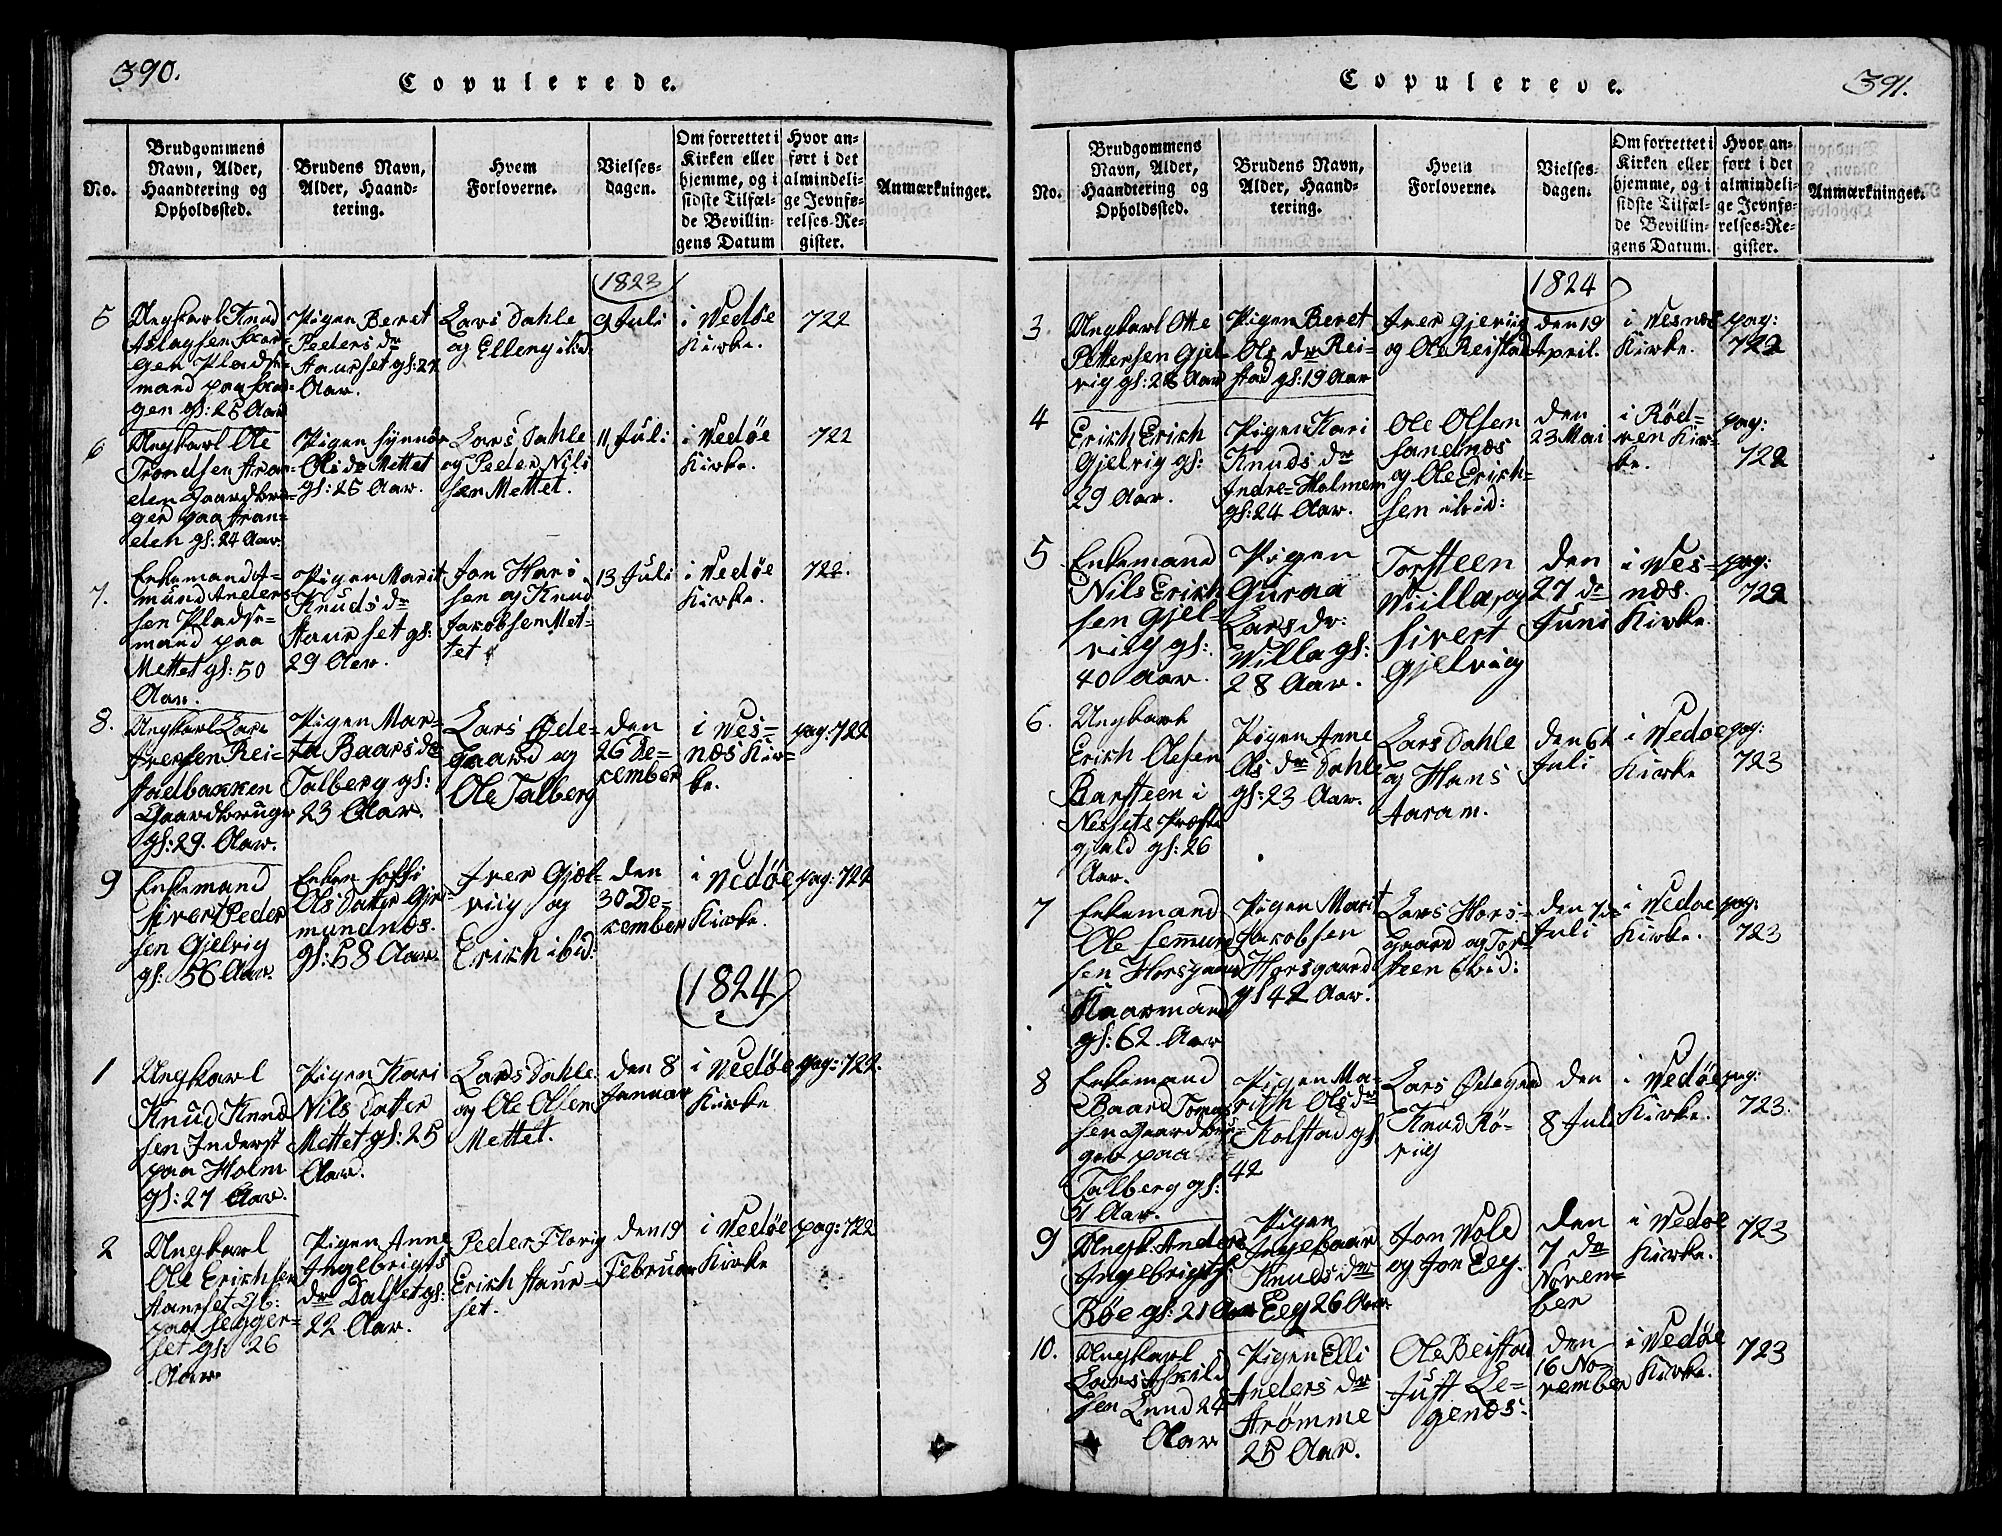 390.
Copulerede.
No.
Brudgommens
Navn, Alder,
Haandtering og
Opholdssted.
Brudens Navn,
Alder, Haand-
tering.
Hvem
Forloverne.
Vielses-
dagen.
Om forrettet i
Kirken eller
hjemme, og i
sidste Tilfæl-
de Bevillin-
gens Datum
Hvor an-
ført i det
almindeli-
ge Jevnfø-
relses-Re-
gister.
Anmærkninger.
1823
5
Ungkarl Knud
Aslagsen
gen Plads-
mand paa
gen gl: 25 Aar
Pigen Beret
Peders dr
Staurset gl: 27
Aar.
Lars Dahle
og Elleng ibid
9 Juli
i Vedøe
Kirke.
722
6
Ungkarl Ole
Trondsen Stran-
den Gaardbru-
ger paa Stran-
den gl: 24 Aar.
Pigen Synnøv
Ols dr Mettet
gl: 25 Aar.
Lars Dahle
og Peder Nils
sen Mettet.
11 Juli
i Vedøe
Kirke.
722
7.
Enkemand A-
mund Anders
sen Pladse-
mand paa
Mettet gl: 50
Aar.
Pigen Marit
Knuds dr
Staurset gl:
29 Aar.
Jon Hans
sen og Knud
Jacobsen Met-
tet
13 Juli
i Vedøe
Kirke.
722.
8.
Ungkarl Lars
Iversen Rei-
stadbakken
Gaardbruger
gl: 29. Aar.
Pigen Mar-
ta Baars dr
Talberg gl:
23 Aar.
Lars Øde-
gaard og
Ole Talberg
den
26 De-
cember
i Ves-
næs Kir-
ke.
pag: 722
9
Enkemand
Sivert Peder
sen Gjelvig
gl: 56 Aar.
Enken Soffi
Ols Datter Gjer-
mundnæs.
gl: 58 Aar.
Iver Gjel-
viig og
Erich ibid.
den
30 De-
cember
i Vedøe
Kirke.
pag: 722
1824
1
Ungkarl
Knud Knud
sen Inderst
paa Holm
gl: 27 Aar.
Pigen Kari
Nils Datter
Mettet gl: 25
Aar.
Lars Dahle
og Ole Olsen
Mettet.
den 8
Januar
i Vedøe
Kirke
pag: 722.
2
Ungkarl
Ole Erichsen
Staurset Gb:
paa
set gl: 26
Aar
Pigen Anne
Ingebrigts
dr Dalset gl:
22 Aar.
Peder Flovig
Erich Staur-
set.
den 19
Februar
i Vedøe
Kirke
pag: 722
391.
Copulerede.
No.
Brudgommens
Navn, Alder,
Haandtering og
Opholdssted.
Brudens Navn,
Alder, Haand-
tering.
Hvem
Forloverne.
Vielses-
dagen.
Om forrettet i
Kirken eller
hjemme, og i
sidste Tilfæl-
de Bevillin-
gens Datum.
Hvor an-
ført i det
almindeli-
ge Jevnfø-
relses-Re-
gister.
Anmærkninger.
1824
3
Ungkarl Otte
Pettersen Gjel-
vig gl: 28 Aar
Pigen Beret
Ols dr Rei-
stad gl: 19 Aar
Iver Gjelviig
og Ole Reistad
den 19
April.
i Vesnæs
Kirke.
pag:
722
4
Erich Erich
Gjelvig gl:
29 Aar.
Pigen Kari
Knuds dr
Indre-Holmem
gl: 24 Aar.
Ole Olsen
Sandnæs
og Ole Erich-
sen ibid:
den
23 Mai
i Rød-
ven Kir-
ke.
pag:
722
5
Enkemand
Nils Erich
sen Gjel-
viig gl:
40 Aar.
Pigen
Guraa
Lars dr:
Villa gl:
28 Aar.
Torsteen
Villa, og
Sivert
Gjelviig
den
27 de
Juni
i Ves-
næs.
Kirke.
pag:
722
6.
Ungkarl
Erich Olesen
Barsteen i
Nessets Præste
gjæld gl: 26
Aar.
Pigen Anne
Ols dr Dahle
gl: 23 Aar.
Lars Dahle
og Hans
Aaram.
den 6te
Juli
i Vedøe
Kirke
pag:
723
7
Enkemand
Ole Semund
sen Horsgaard
Kaarmand
gl: 62 Aar
Pigen Marit
Jacobsen
Horsgaard
gl 42 Aar.
Lars Hors-
gaard og Tor-
steen ibid:
den 7de
Juli
i Vedøe
Kirke.
pag:
723
8
Enkemand
Baard Tomas
sen Gaardbru-
ger paa
Talberg gl:
51 Aar.
Pigen Ma-
rith Ols dr
Kolstad gl:
42
Lars Ødegaard
Knud Rø-
viig
den
8 Juli
i Vedøe
Kirke.
pag:
723.
9
Ungk: Anders
Ingebrigts:
Bøe gl: 21 Aar
Pigen
Ingebaar
Knuds dr
Eeg 26 Aar.
Jon Vold
og Jon Eeg.
den
7 de
Novem-
ber
i Vedøe
Kirke.
723
10.
Ungkarl
Lars Askild
sen Lund 28
Aar
Pigen Elli
Anders dr
Strømme
25 Aar.
Ole Beistad
Just Le-
genæs.
den
16 No-
vember
i Vedøe
Kirke.
723